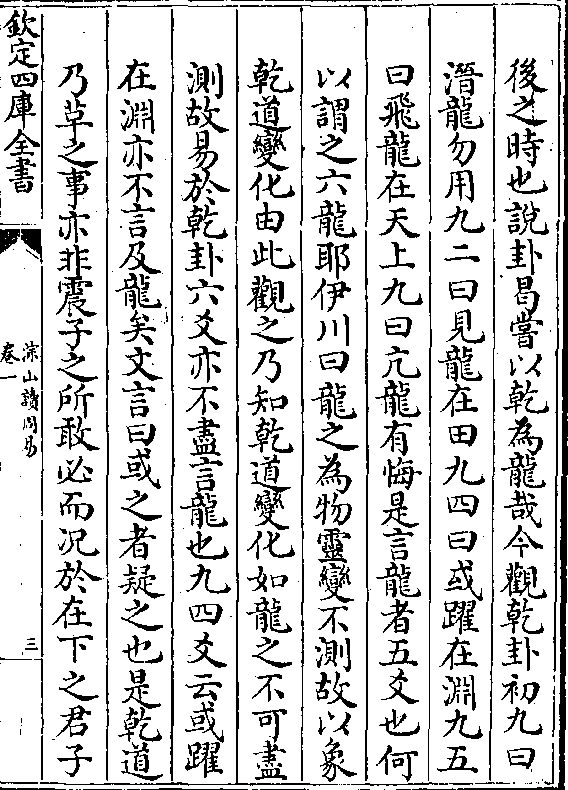 後之時也說卦曷嘗以乾為龍哉今觀乾卦初九曰
潛龍勿用九二曰見龍在田九四曰或躍在淵九五
曰飛龍在天上九曰亢龍有悔是言龍者五爻也何
以謂之六龍耶伊川曰龍之為物靈變不測故以象
乾道變化由此觀之乃知乾道變化如龍之不可盡
測故易於乾卦六爻亦不盡言龍也九四爻云或躍
在淵亦不言及龍矣文言曰或之者疑之也是乾道
乃革之事亦非震子之所敢必而况於在下之君子
欽定四庫全書
淙山讀周易
卷一
三